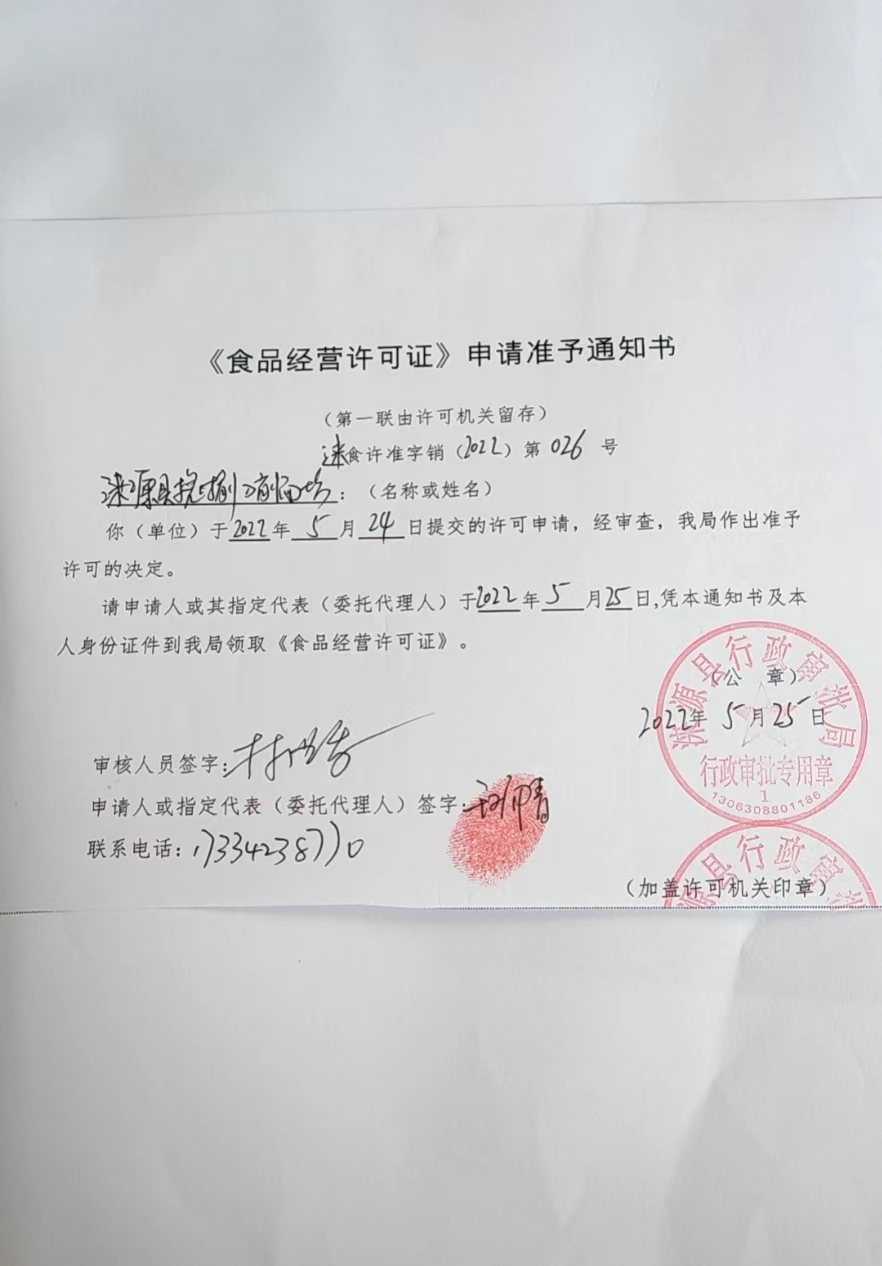 《食品经营许可证》申请准予通知书
（第一联由许可机关留存）
涞食许准字销（2022）第 026 号
涞源县：（名称或姓名）
你（单位）于2022年 5 月 24 日提交的许可申请，经审查，我局作出准予
许可的决定。
请申请人或其指定代表（委托代理人）于2022年 5 月25日,凭本通知书及本
人身份证件到我局领取《食品经营许可证》。
（公 章）
2022年 5 月25日
涞源县行政审批局
行政审批专用章
1
1306308801186
审核人员签字：
申请人或指定代表（委托代理人）签字：
联系电话：17334238770
（加盖许可机关印章）
源县行政审